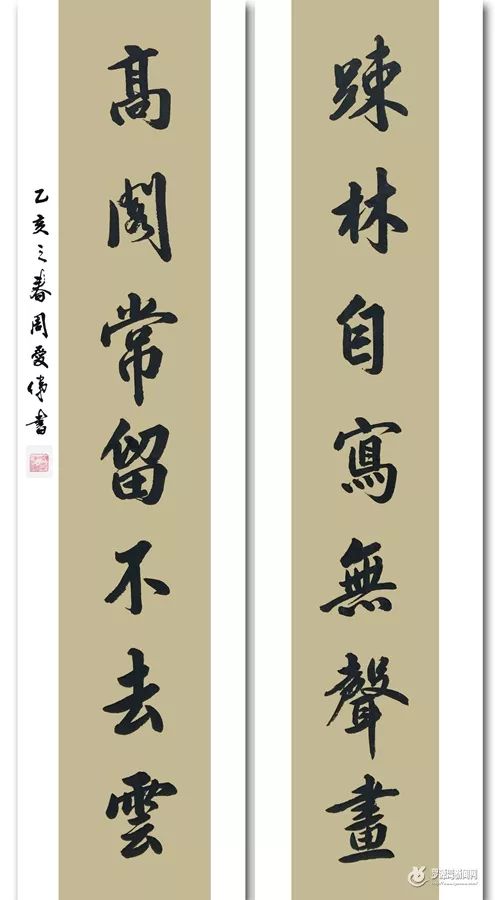 踈林自寫無聲畫
高閣常留不去雲
乙亥之春周愛偉書